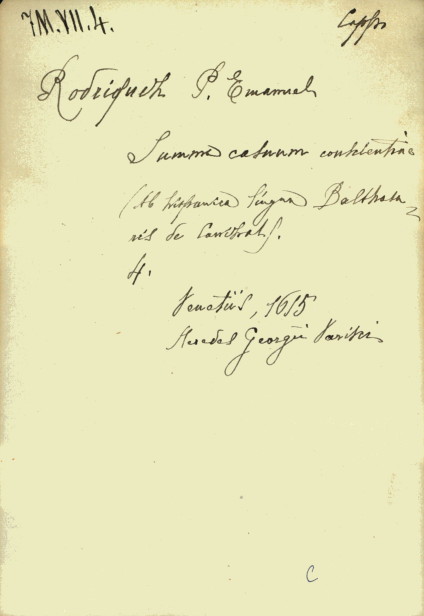 7M.VII.4.
Rodriguez P. Emanuel
Summa casuum conscientiae
(Ab hispanica lingua Balthasa-
ris de Canizal).
4.
Venetiis, 1615
Haeredes Georgii Varisci
C